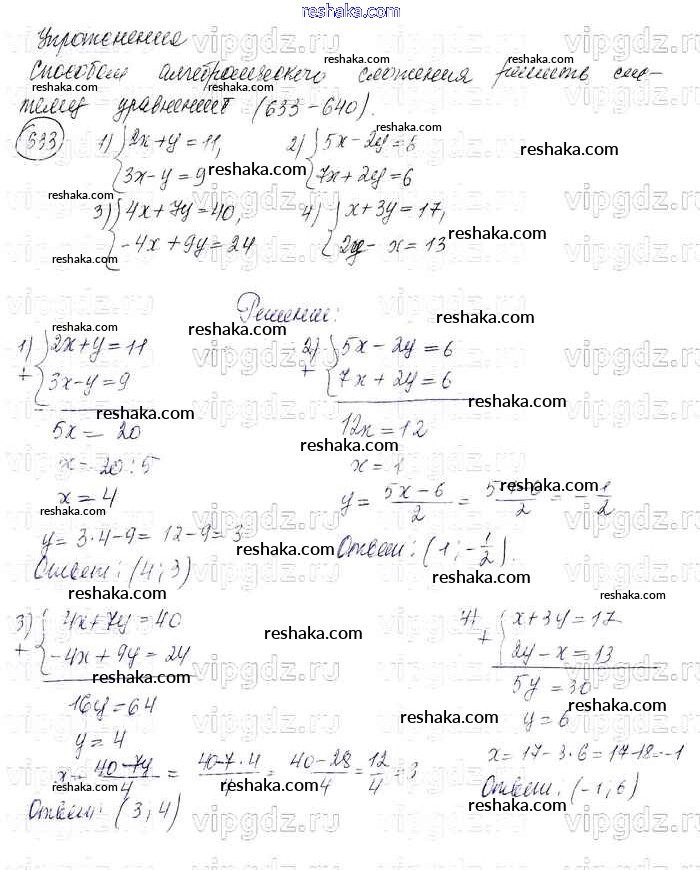 reshaka.com
Упражнения
Способом алгебраического сложения решить сис-
тему уравнений (633-640).
633 1) { 2x+y=11, 3x-y=9 2) { 5x-2y=6 7x+2y=6
3) { 4x+7y=40, -4x+9y=24 4) { x+3y=17, 2y-x=13
Решение:
1) + { 2x+y=11 3x-y=9
5x=20
x=20:5
x=4
y=3·4-9=12-9=3
Ответ: (4;3)
2) + { 5x-2y=6 7x+2y=6
12x=12
x=1
y= (5x-6)/2 = = -1/2
Ответ: (1;-1/2).
3) + { 4x+7y=40 -4x+9y=24
16y=64
y=4
x= (40-7y)/4 = (40-7·4)/4 = (40-28)/4 = 12/4 = 3
Ответ: (3,4)
4) + { x+3y=17 2y-x=13
5y=30
y=6
x=17-3·6=17-18=-1
Ответ: (-1,6)
vipgdz.ru